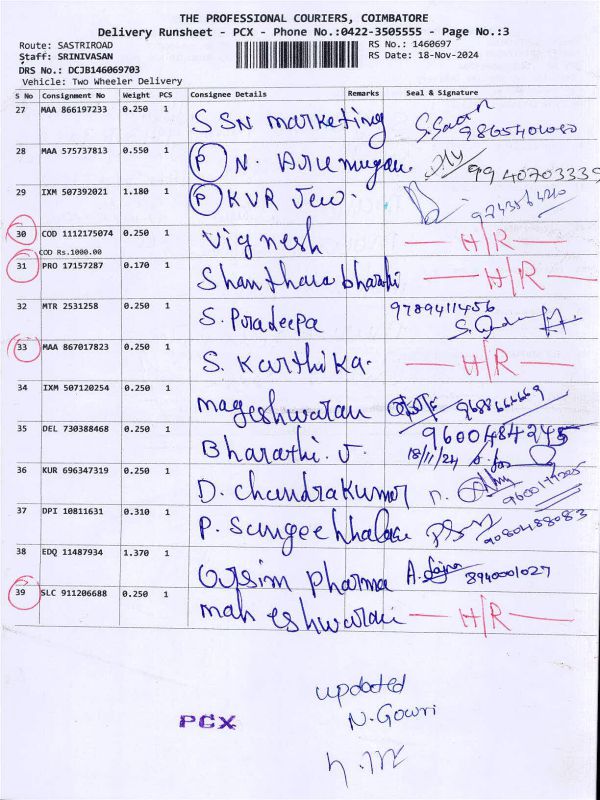 THE PROFESSIONAL COURIERS, COIMBATORE
Delivery Runsheet - PCX - Phone No.:0422-3505555 - Page No.:3
Route: SASTRIROAD RS No.: 1460697
Staff: SRINIVASAN RS Date: 18-Nov-2024
DRS No.: DCJB146069703
Vehicle: Two Wheeler Delivery
S No Consignment No Weight PCS Consignee Details Remarks Seal & Signature
27 MAA 866197233 0.250 1 SSN marketing 9865401080
28 MAA 575737813 0.550 1 P N. Arumugam 9940703339
29 IXM 507392021 1.180 1 P KVR Jew.
30 COD 1112175074 0.250 1 Vignesh H/R
COD Rs.1000.00
31 PRO 17157287 0.170 1 Shanthara bharathi H/R
32 MTR 2531258 0.250 1 S. Pradeepa 9789411456
33 MAA 867017823 0.250 1 S. Karthika. H/R
34 IXM 507120254 0.250 1 mageshwaran
35 DEL 730388468 0.250 1 Bharathi. J. 9600484245
18/11/24
36 KUR 696347319 0.250 1 D. chandrakumar
37 DPI 10811631 0.310 1 P. 9080488083
38 EDQ 11487934 1.370 1 pharma 8940001027
39 SLC 911206688 0.250 1 maheshwaran H/R
updated
N. Gowri
PCX